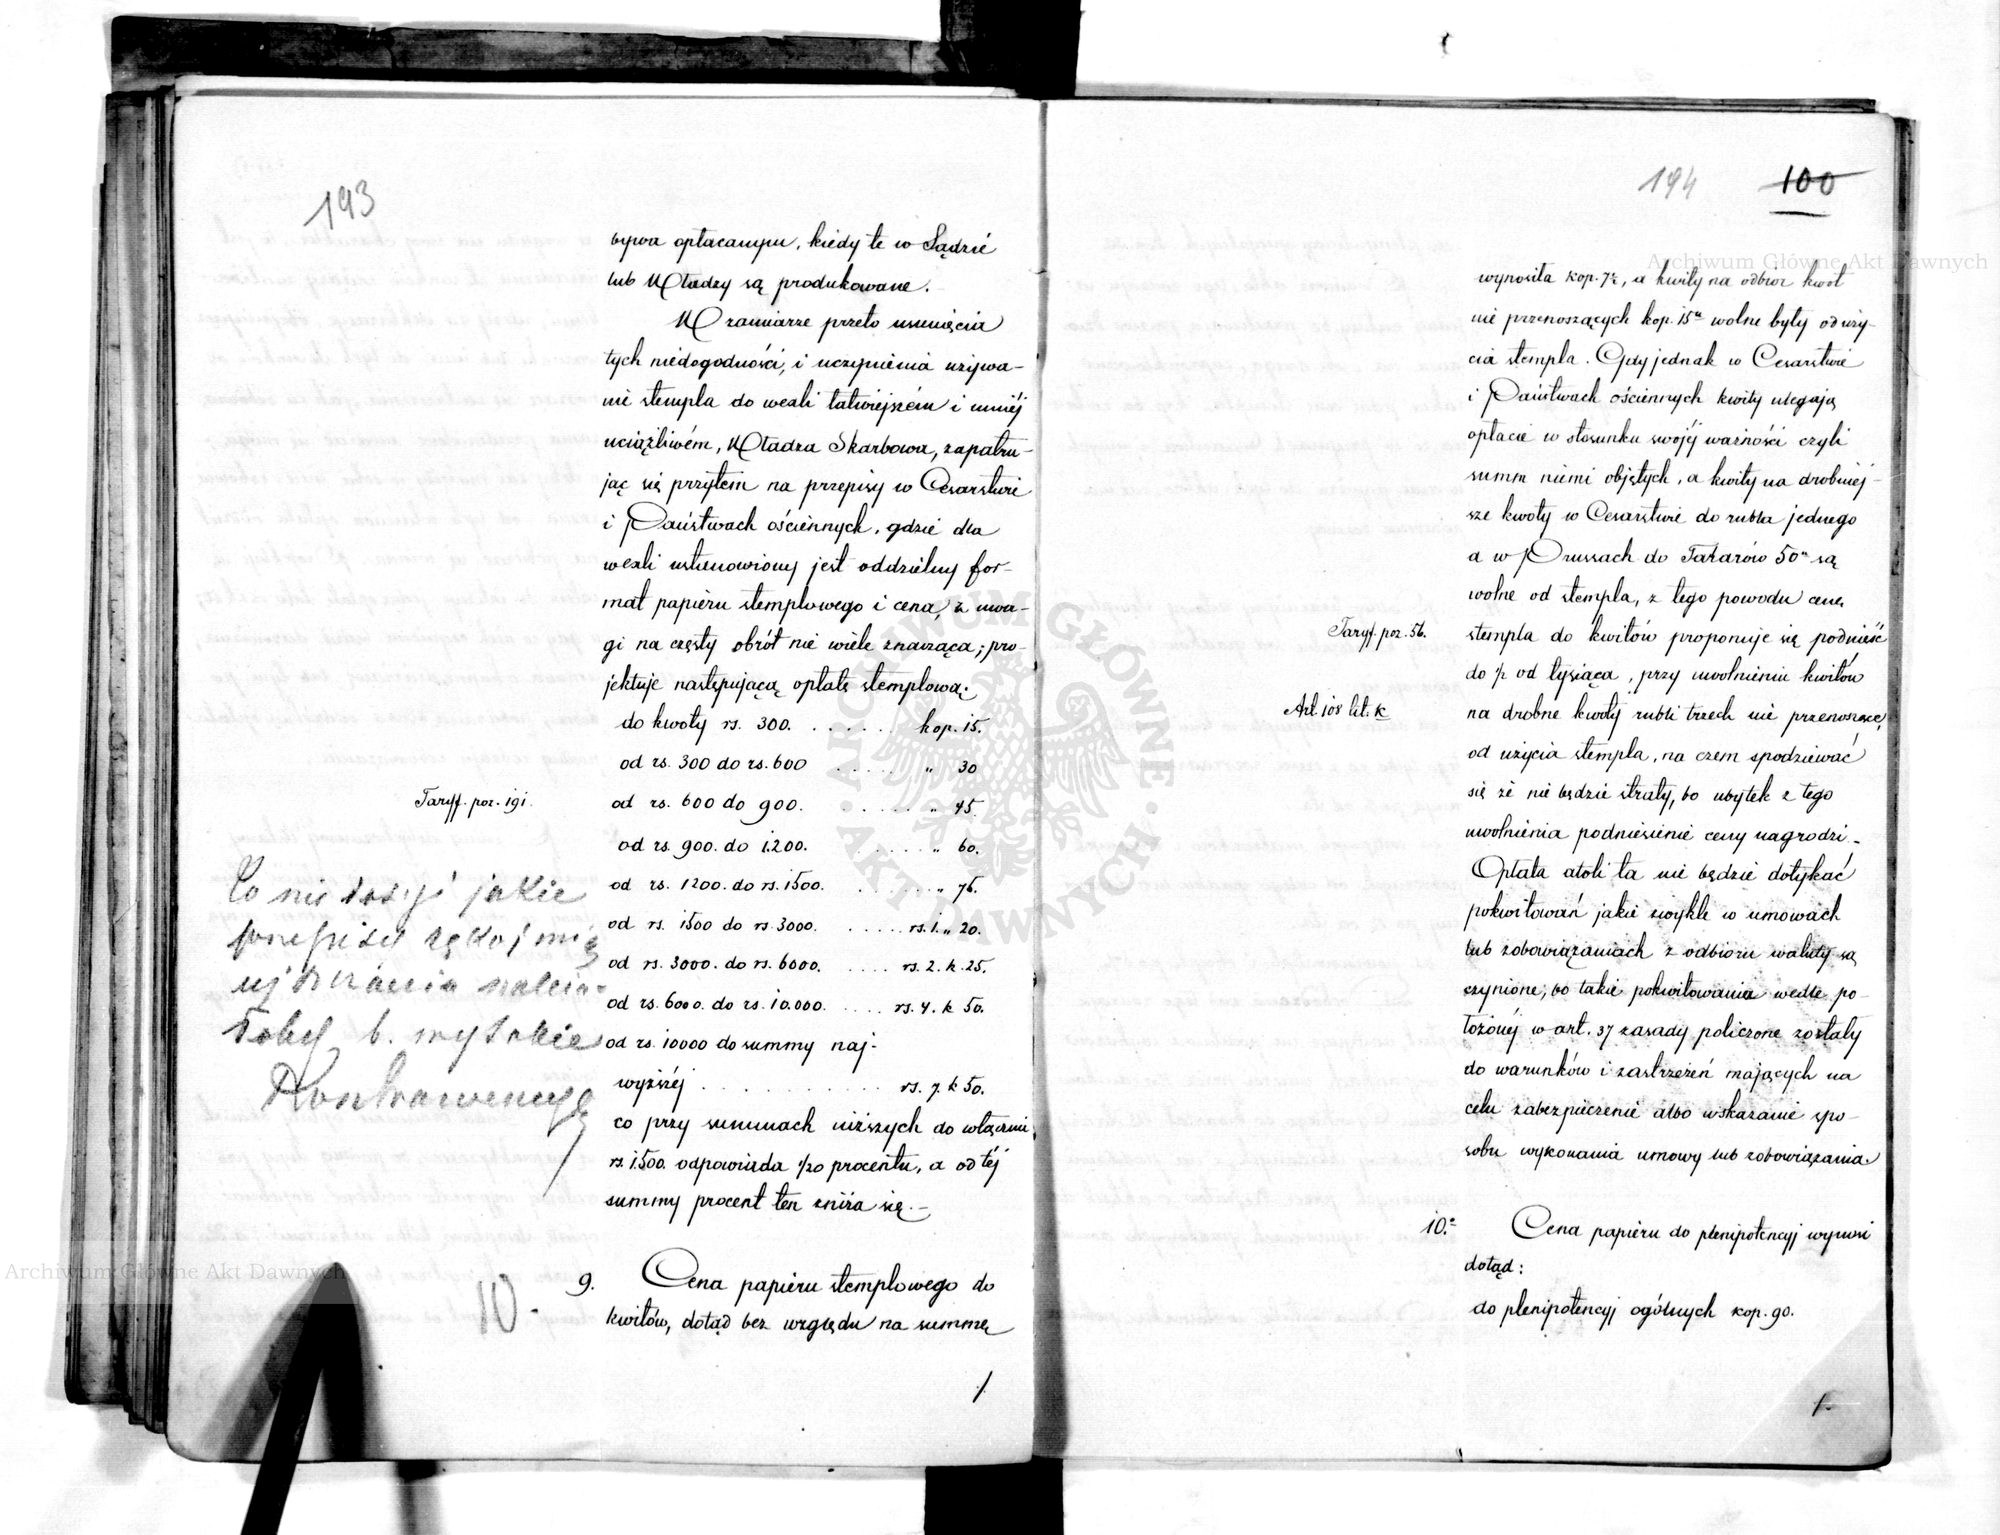 193
bywa opłacanym, kiedy te w Sądzie
lub Władzy są produkowane.
W zamiarze przeto usunięcia
tych niedogodności, i uczynienia używa-
nie stempla do wexli łatwiejszém i mniéj
uciążliwém, Władza Skarbowa, zapatru-
jąc się przytem na przepisy w Cesarstwie
i Państwach ościennych, gdzie dla
wexli ustanowiony jest oddzielny for-
mat papieru stemplowego i cena, z uwa-
gi na częsty obrót nie wiele znacząca; pro-
jektuje następującą opłatę stemplową:
do kwoty rs. 300. . . . . . . kop. 15.
od rs. 300 do rs. 600 . . . . . " 30
Taryff. poz. 191.
od rs. 600 do 900. . . . . . " 45.
od rs. 900. do 1200. . . . . . " 60.
od rs. 1200. do rs. 1500. . . . . . " 75.
od rs. 1500 do rs. 3000. . . . . . rs. 1. " 20.
od rs. 3000. do rs. 6000. . . . . rs. 2. k. 25.
od rs. 6000. do rs. 10.000. . . . . rs. 4. k 50.
od rs. 10000 do summy naj-
wyższéj . . . . . . . . . . rs. 7. k 50.
co przy summach niższych do włącznie
rs. 1500. odpowiada 1/20 procentu, a od téj
summy procent ten zniża się.—
Co nie dosyć jakie
rękojmią
b. wysokie
10.
9. Cena papieru stemplowego do
kwitów, dotąd bez względu na summę
194 100
wynosiła kop. 7½, a kwity na odbiór kwot
nie przenoszących kop. 15" wolne były od uży-
cia stempla. Gdy jednak w Cesarstwie
i Państwach ościennych kwity ulegają
opłacie w stosunku swojéj ważności czyli
summ niemi objętych, a kwity na drobniéj-
sze kwoty w Cesarstwie do rubla jednego
a w Prussach do Talarów 50" są
wolne od stempla, z tego powodu cenę
Taryff. poz. 56.
stempla do kwitów proponuje się podnieść
do ½ od tysiąca, przy uwolnieniu kwitów
Art. 108 lit. k
na drobne kwoty rubli trzech nie przenoszące,
od użycia stempla, na czem spodziewać
się że nie będzie straty, bo ubytek z tego
uwolnienia podniesienie ceny nagrodzi.—
Opłata atoli ta nie będzie dotykać
pokwitowań jakie zwykle w umowach
lub zobowiązaniach z odbioru waluty są
czynione; bo takie pokwitowania wedle po-
łożonéj w art. 37 zasady policzone zostały
do warunków i zastrzeżeń mających na
celu zabezpieczenie albo wskazanie spo-
sobu wykonania umowy lub zobowiązania.
10. Cena papieru do plenipotencyj wynosi
dotąd:
do plenipotencyj ogólnych kop. 90.
Archiwum Główne Akt Dawnych
Archiwum Główne Akt Dawnych
ARCHIWUM GŁÓWNE · AKT DAWNYCH ·